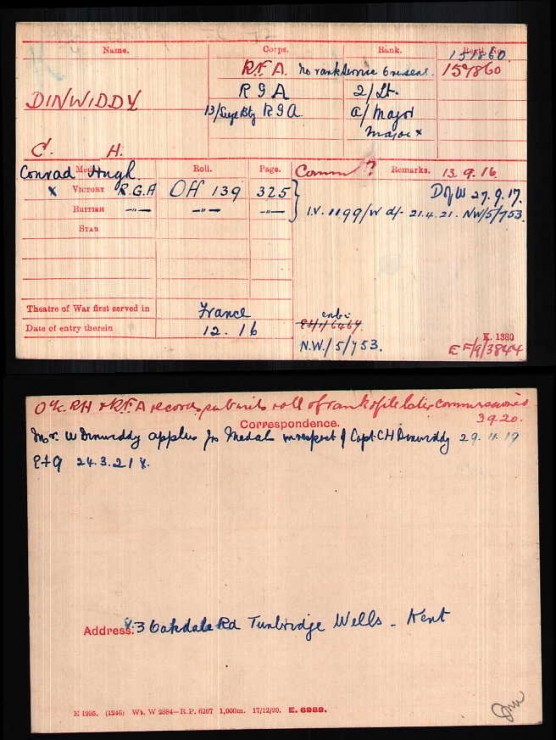 Name.
Corps.
Rank.
151860
R.F.A. no rank Service Overseas. 151860
DINWIDDY
R G A 2/Lt.
13/Siege Bty R G A a/Major
Major x
C. H.
Conrad Hugh.
Medal Roll. Page. Comm? Remarks. 13.9.16
x Victory R.G.A OH 139 325 } D of W 27.9.17.
British —"— —"— —"— I.V. 1199/W d/- 21.4.21. NW/5/753.
Star
Theatre of War first served in France
Date of entry therein 12.16
N.W/5/753.
K. 1380
E F/9/3844
O i/c RH & RFA records submits roll of rank & file later commissioned
3.9.20.
Correspondence.
Mr. W Dinwiddy applies for Medals in respect of Capt. C H Dinwiddy 29.11.19
24.3.21
Address. 3 Oakdale Rd Tunbridge Wells - Kent
K 1955. (1246) Wt. W 2884—R.P. 6167 1,000m. 17/12/20. E. 6989.